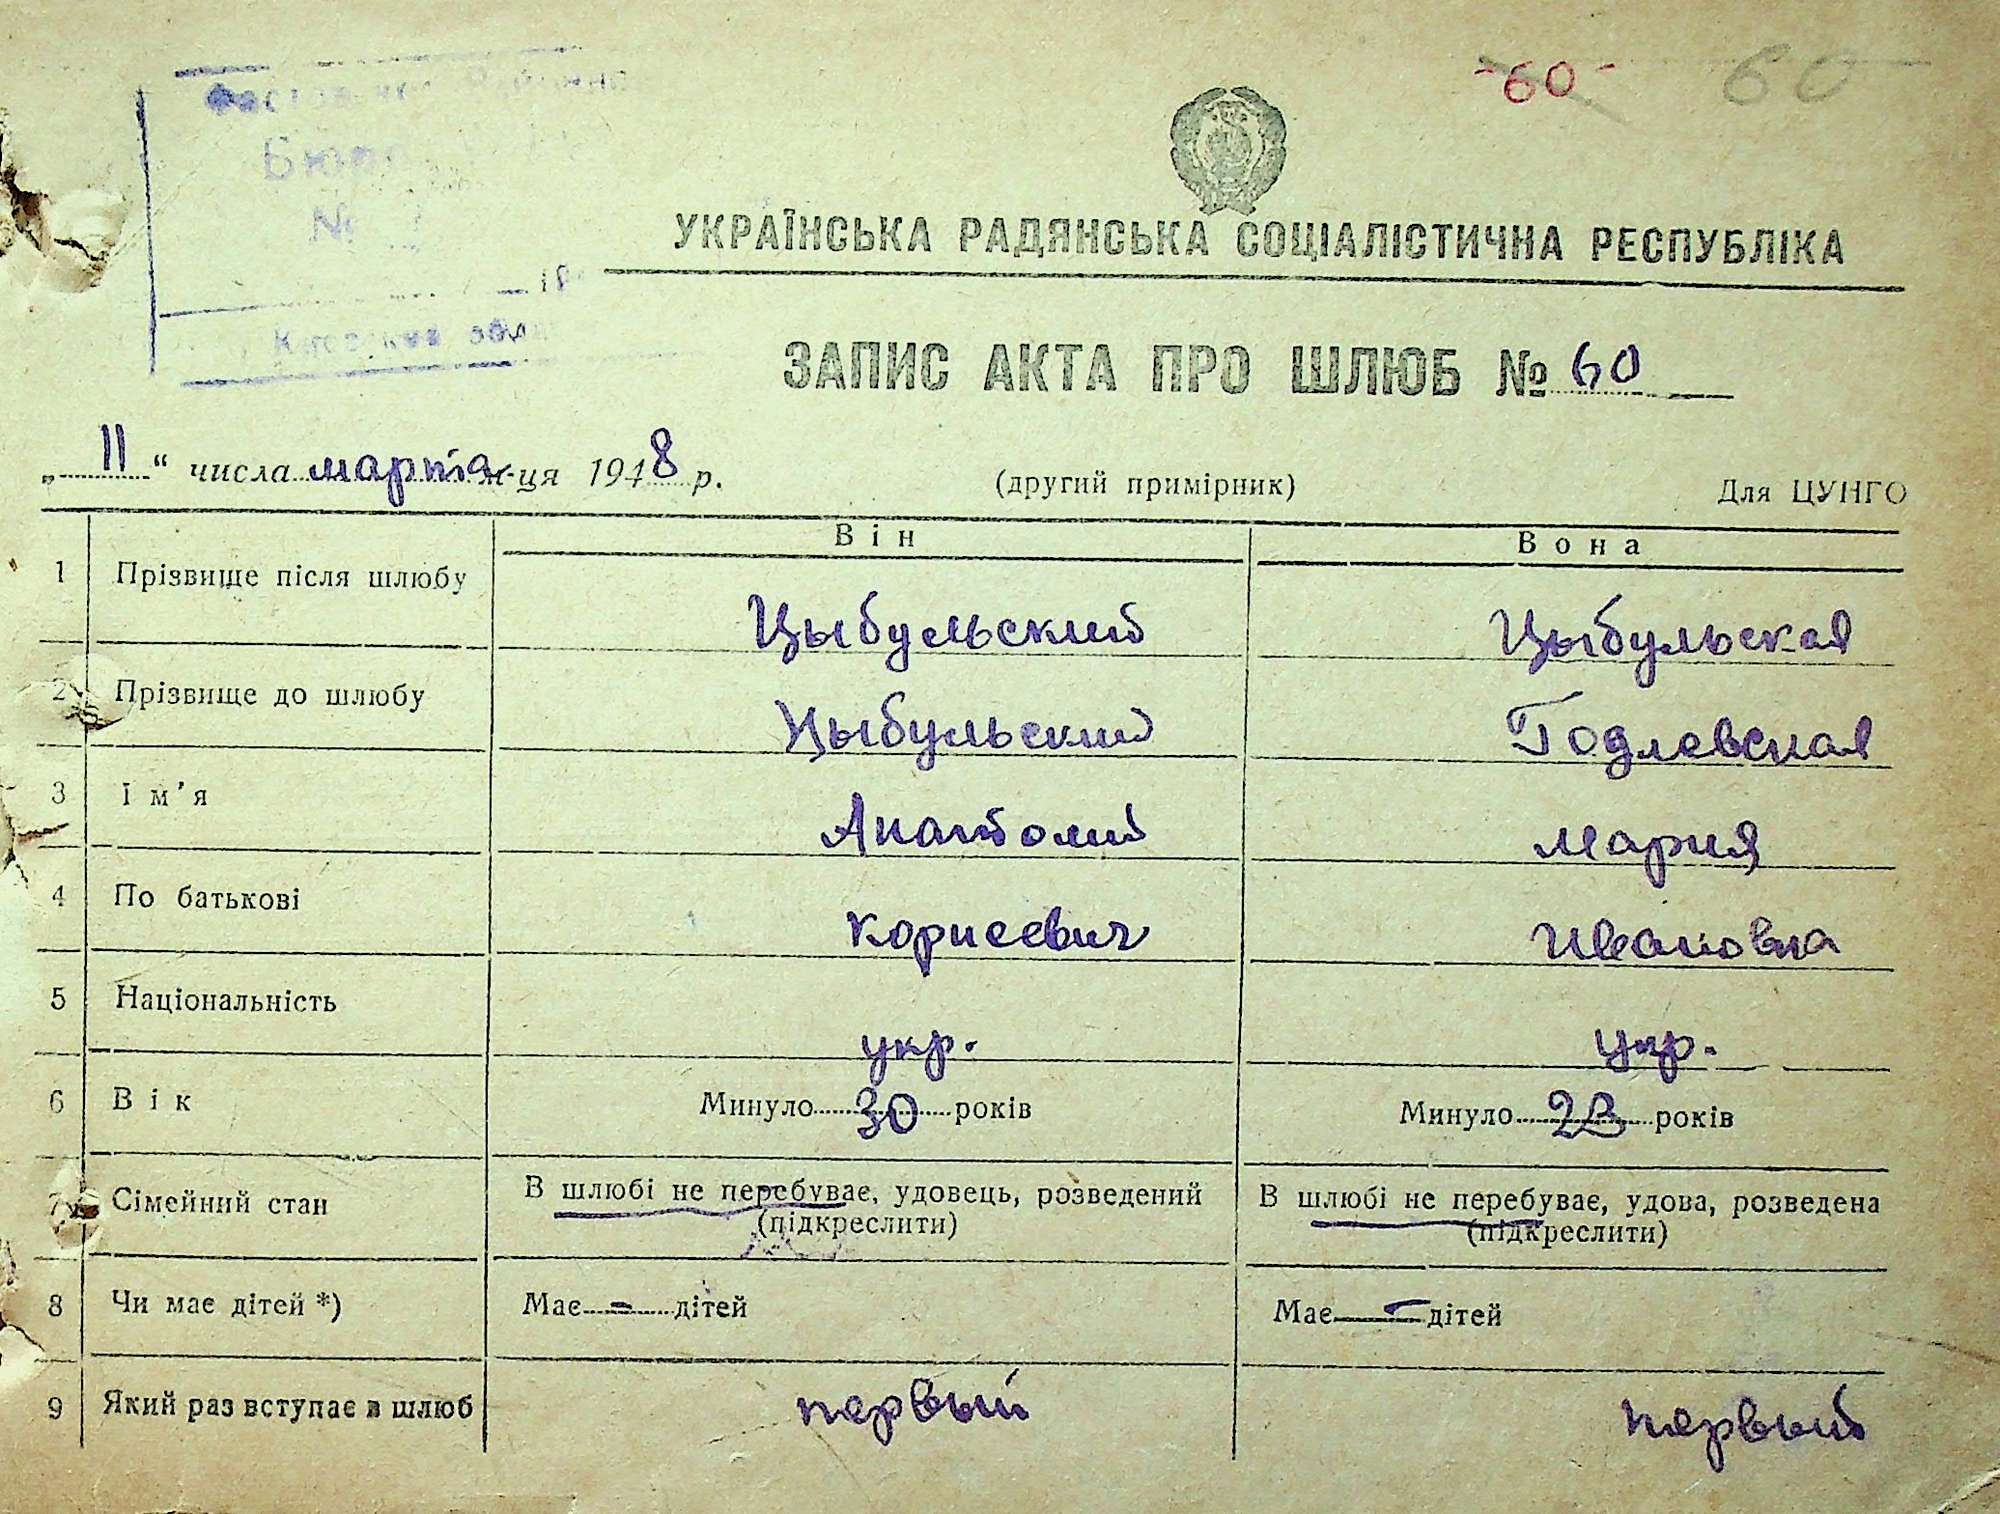 -60- 60
Бюро
№
УКРАЇНСЬКА РАДЯНСЬКА СОЦІАЛІСТИЧНА РЕСПУБЛІКА
ЗАПИС АКТА ПРО ШЛЮБ № 60
„11“ числа марта м-ця 1948 р. (другий примірник) Для ЦУНГО
Він Вона
1 Прізвище після шлюбу Цыбульский Цыбульская
2 Прізвище до шлюбу Цыбульский Годлевская
3 Ім’я Анатолий Мария
4 По батькові Корнеевич Ивановна
5 Національність укр. укр.
6 Вік Минуло 30 років Минуло 23 років
7 Сімейний стан В шлюбі не перебуває, удовець, розведений В шлюбі не перебуває, удова, розведена
(підкреслити) (підкреслити)
8 Чи має дітей *) Має - дітей Має - дітей
9 Який раз вступає в шлюб первый первый